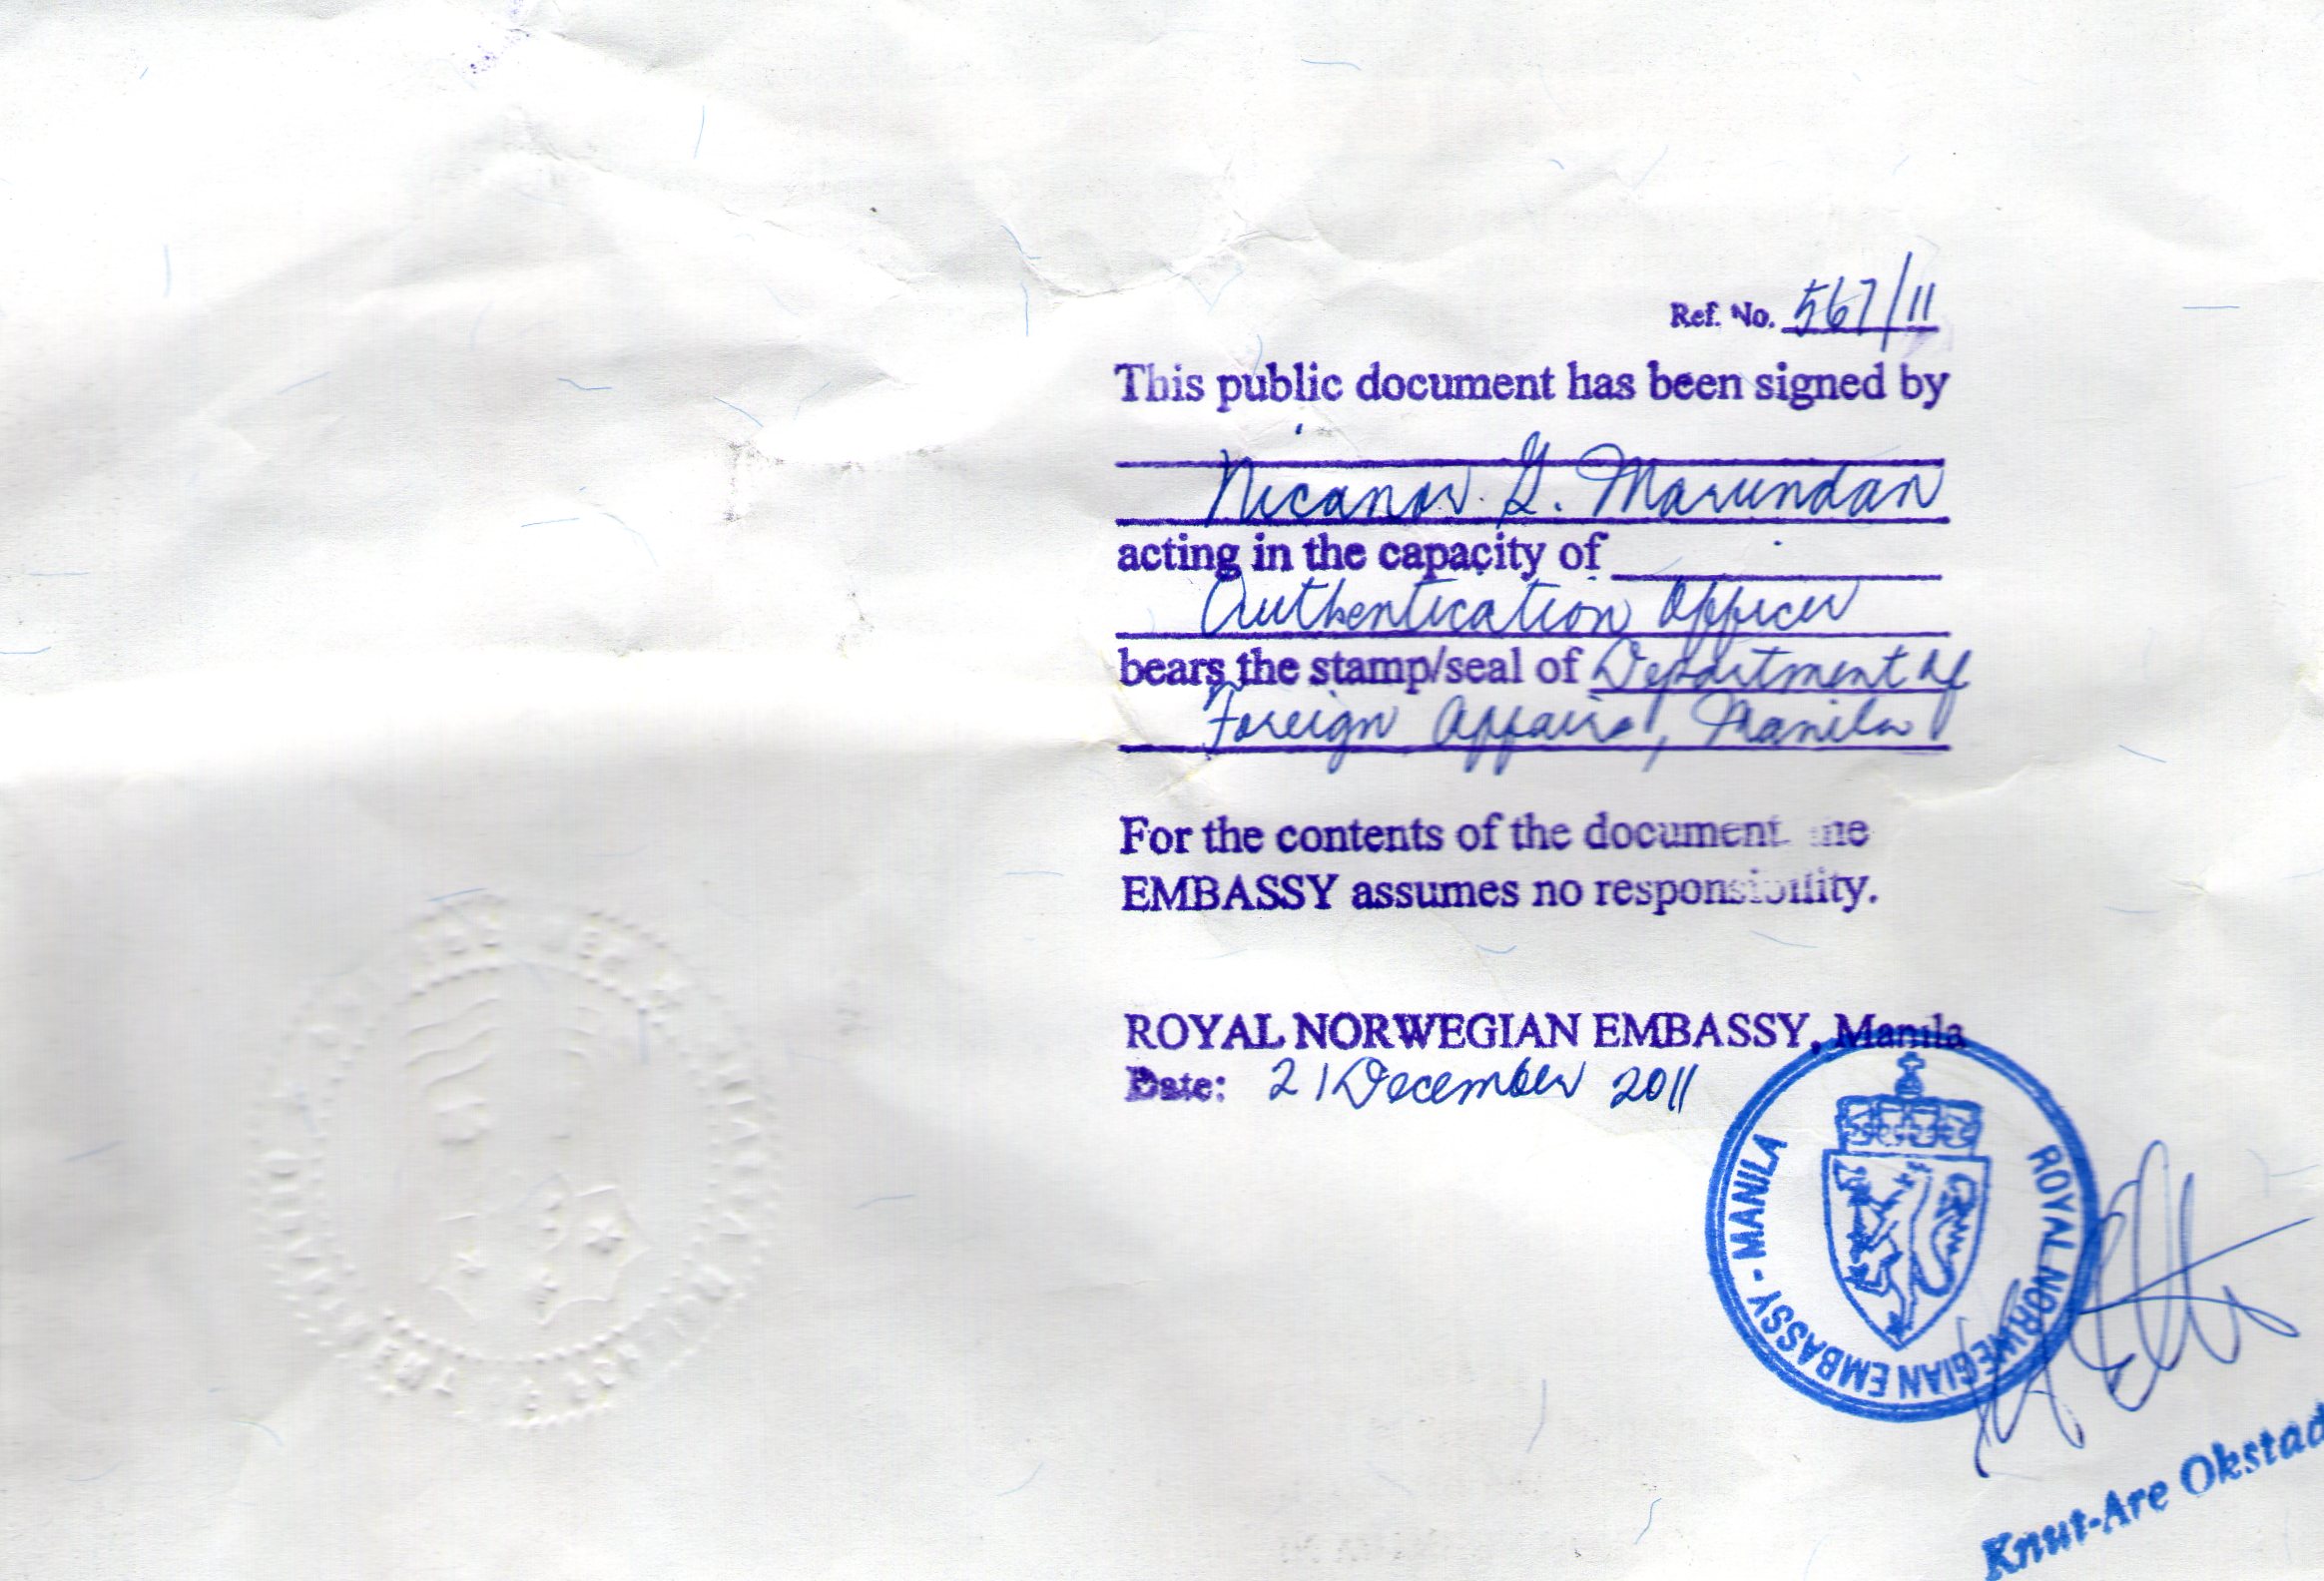 Ref. No. 567/11
This public document has been signed by
Nicanor G. Marundan
acting in the capacity of
Authentication Officer
bears the stamp/seal of Department of
Foreign Affairs, Manila
For the contents of the document the
EMBASSY assumes no responsibility.
ROYAL NORWEGIAN EMBASSY, Manila
Date: 21 December 2011
ROYAL NORWEGIAN EMBASSY - MANILA
Knut-Are Okstad